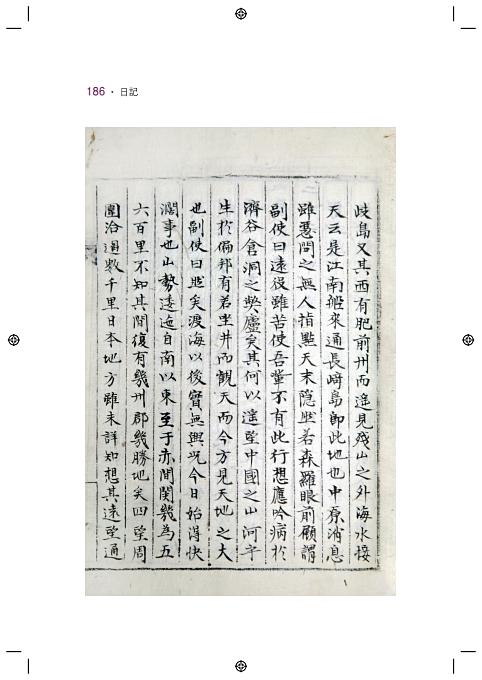 186 • 日記
歧島又其西有肥前州而遙見殘山之外海水接
天云是江南船來通長崎島卽此地也中原消息
雖憑問之無人指點天末隱然若森羅眼前顧謂
副使曰遠役雖苦使吾輩不有此行想應吟病於
濟谷倉洞之弊廬矣其何以遙望中國之山河乎
生於偏邦有若坐井而觀天而今方見天地之大
也副使曰然矣渡海以後實無興況今日始得快
濶事也山勢逶迤自南以東至于赤間關幾爲五
六百里不知其間復有幾州郡幾勝地矣四望周
圍洽過數千里日本地方雖未詳知想其遠望通